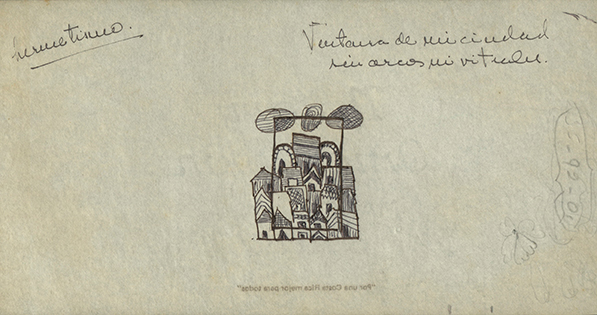 hermetismo.
Ventana de mi ciudad
sin arcos ni vitrales.
"Por una Costa Rica mejor para todos"